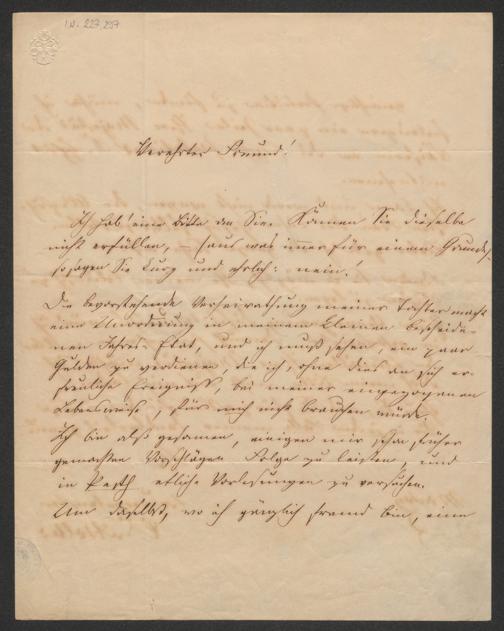 I.N. 227.297
Verehrter Freund!
Ich hab' eine Bitte an Sie. Können Sie dieselbe
nicht erfüllen, – (aus was immer für einem Grunde)
so sagen Sie kurz und ehrlich: nein!
Die bevorstehende Verheirathung meiner Tochter macht
eine Unordnung in meinem kleinen bescheide-
nen Jahres-Etat, und ich muß sehen, ein paar
Gulden zu verdienen, die ich, ohne dies an sich er-
freuliche Ereigniß, bei meiner eingezogenen
Lebensweise, für mich nicht brauchen würde.
Ich bin also gesonnen, einigen mir schon früher
gemachten Vorschlägen Folge zu leisten, und
in Pesth etliche Vorlesungen zu versuchen.
Um daselbst, wo ich gänzlich fremd bin, eine